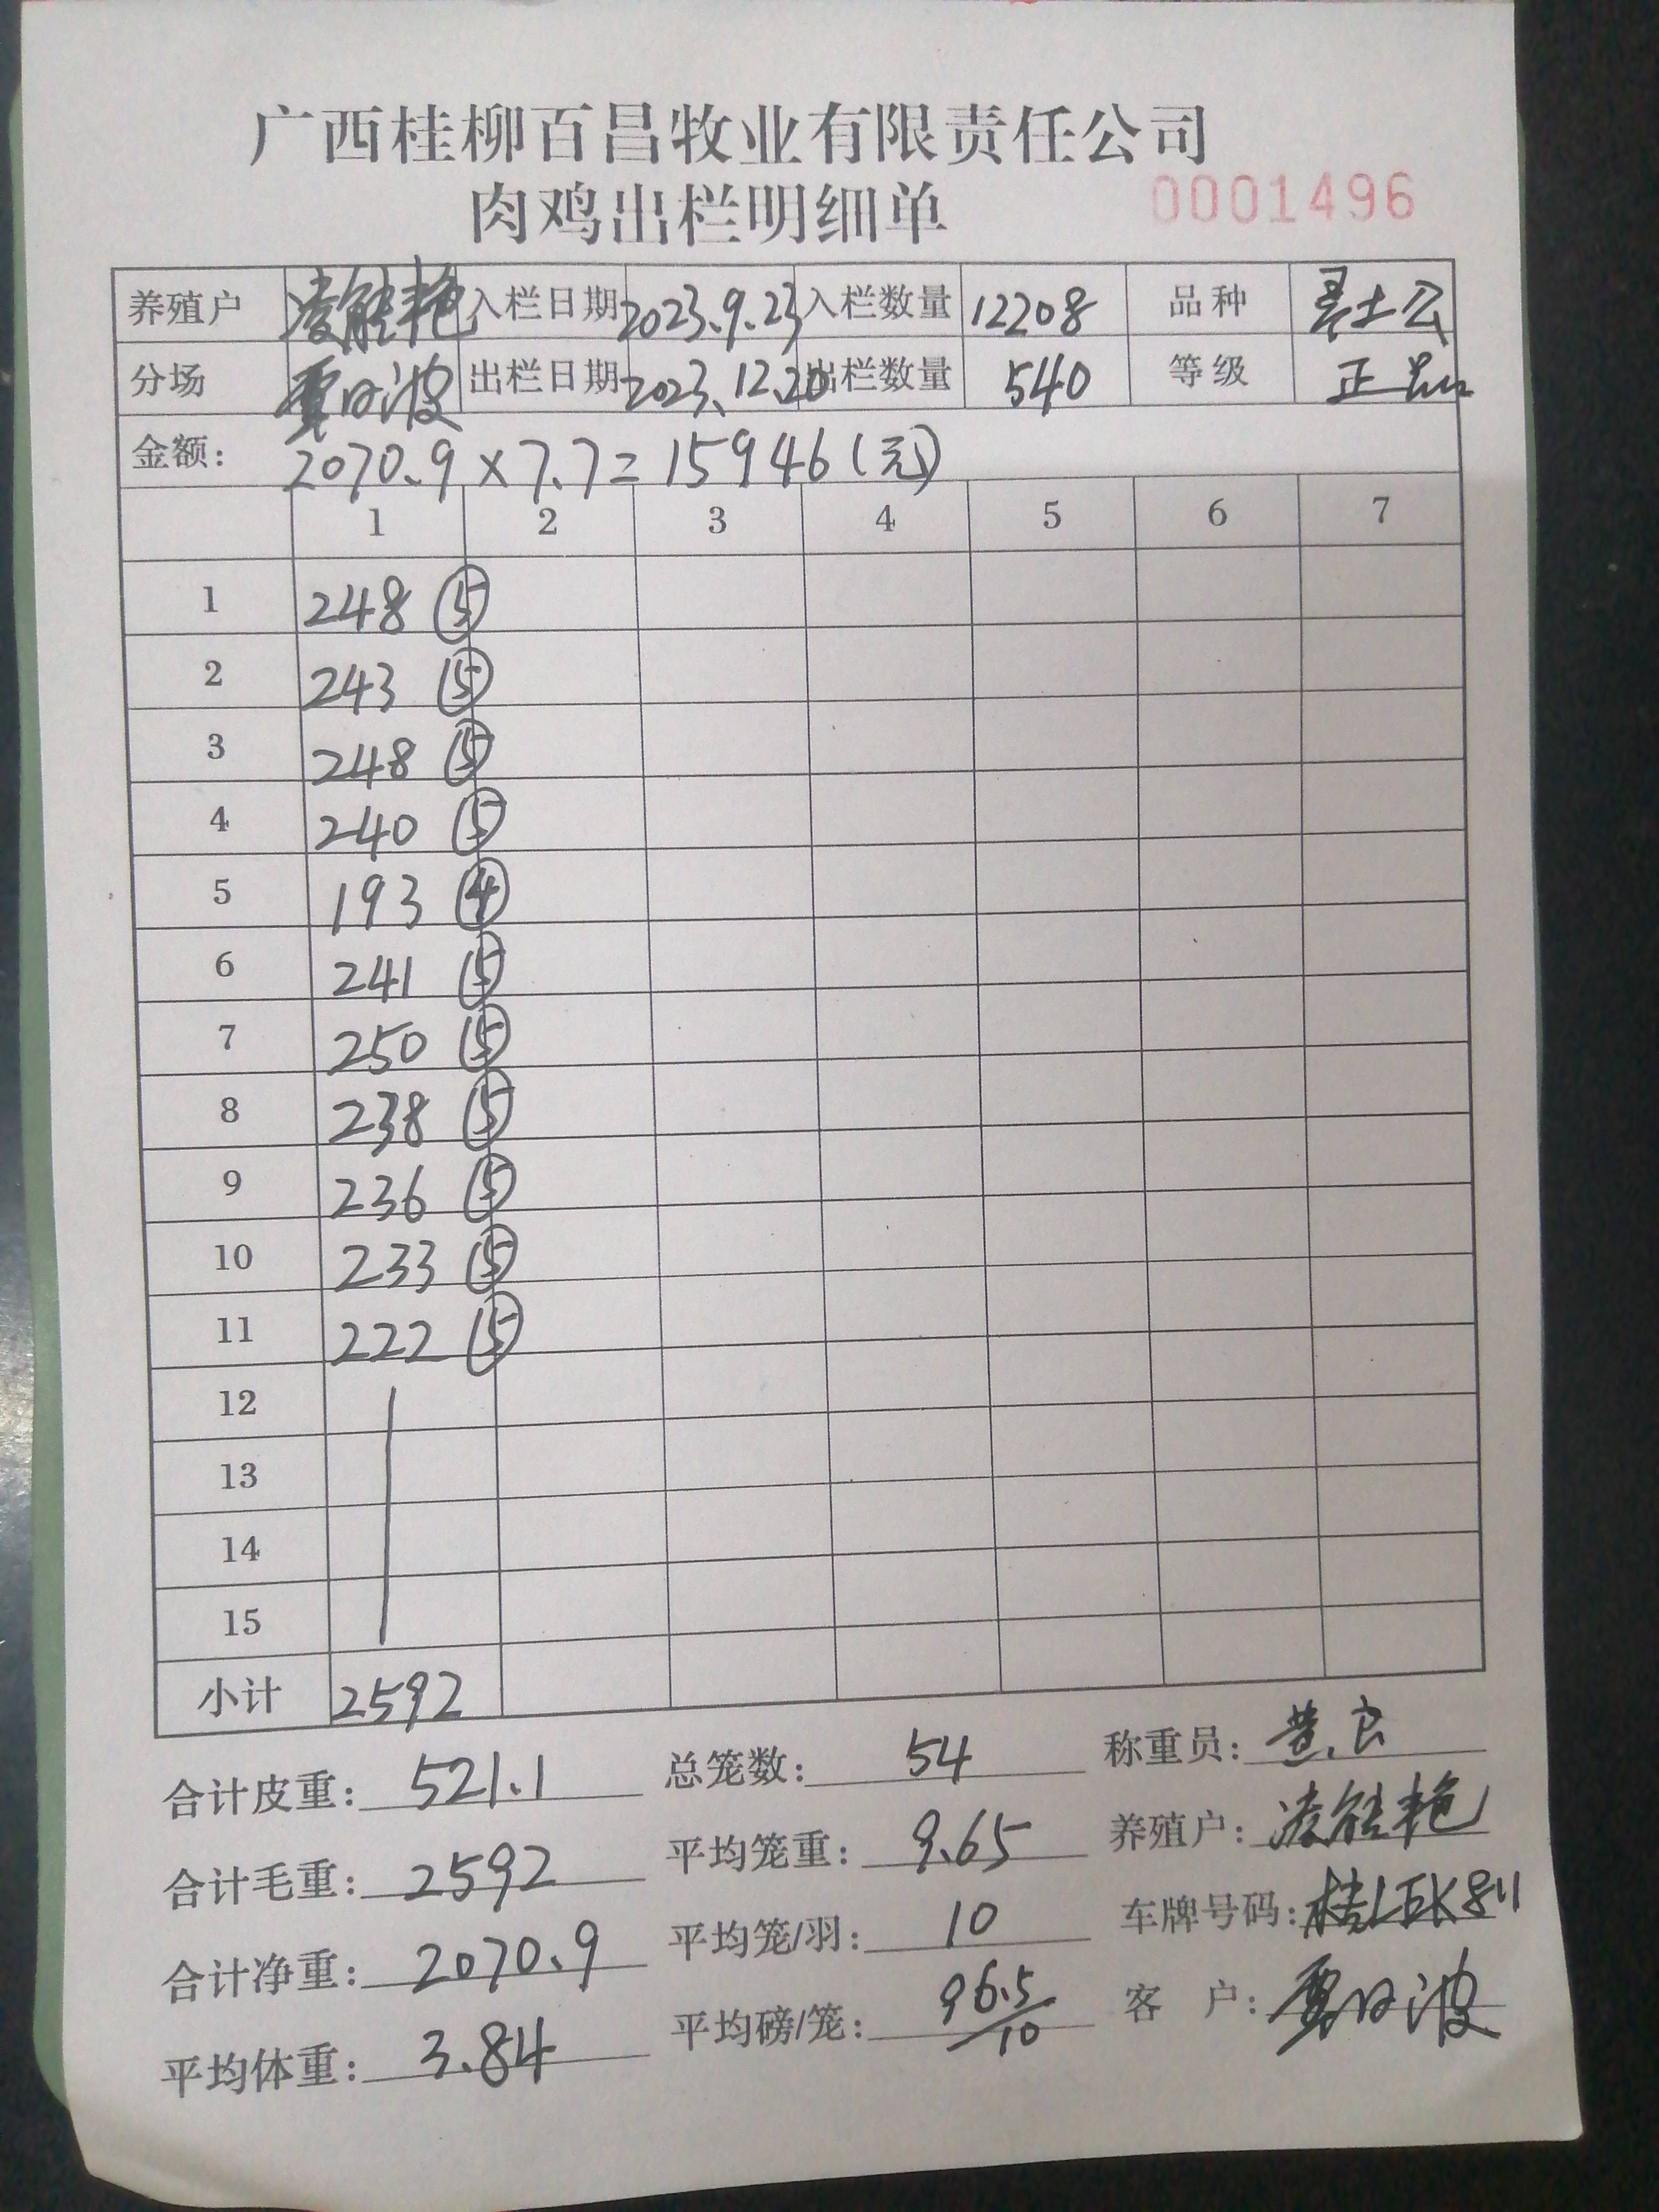 广西桂柳百昌牧业有限责任公司
肉鸡出栏明细单 0001496
养殖户 凌能艳 入栏日期 2023.9.23 入栏数量 12208 品种 土公
分场 日波 出栏日期 2023.12.20 出栏数量 540 等级 正品
金额: 2070.9×7.7=15946(元)
1 2 3 4 5 6 7
1 248 ⑤
2 243 ⑤
3 248 ⑤
4 240 ⑤
5 193 ④
6 241 ⑤
7 250 ⑤
8 238 ⑤
9 236 ⑤
10 233 ⑤
11 222 ⑤
12
13
14
15
小计 2592
合计皮重: 521.1 总笼数: 54 称重员:
合计毛重: 2592 平均笼重: 9.65 养殖户: 凌能艳
合计净重: 2070.9 平均笼/羽: 10 车牌号码: 桂LEK811
平均体重: 3.84 平均磅/笼: 96.5/10 客 户: 日波